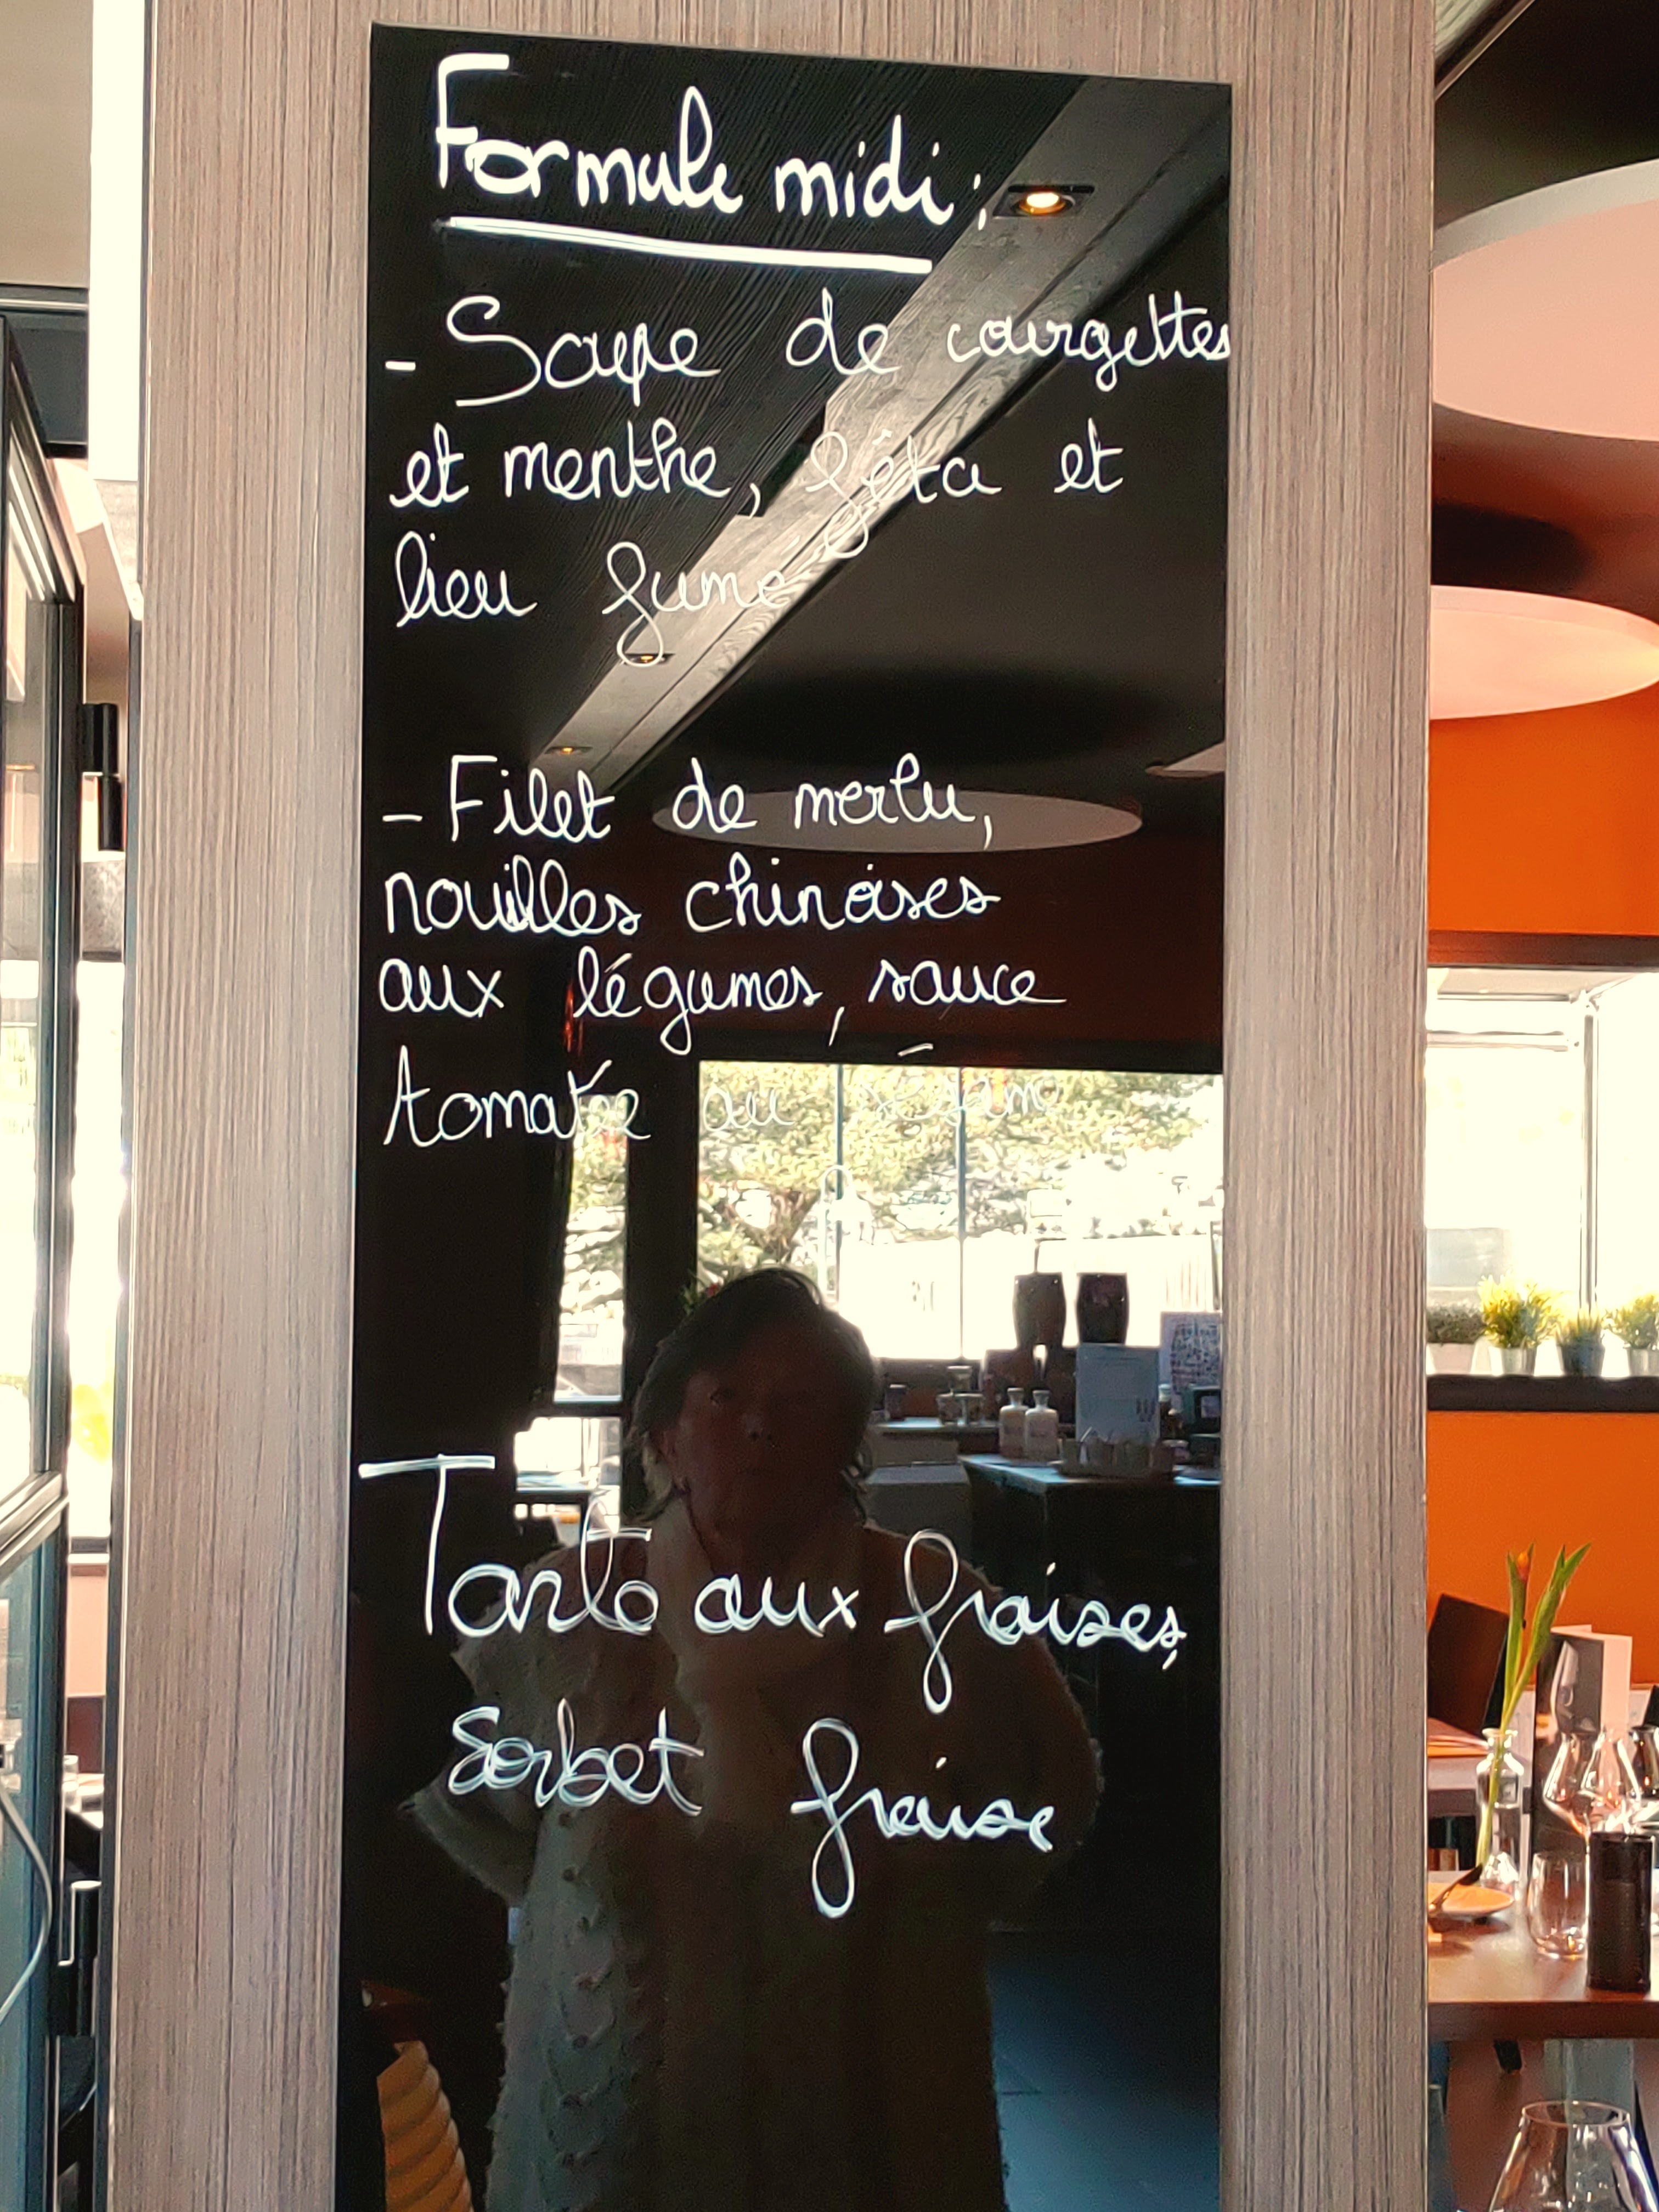 Formule midi :
- Soupe de courgettes
et menthe, fêta et
lieu fumé
- Filet de merlu,
nouilles chinoises
aux légumes, sauce
tomatée au sésame
Tarte aux fraises,
Sorbet fraise